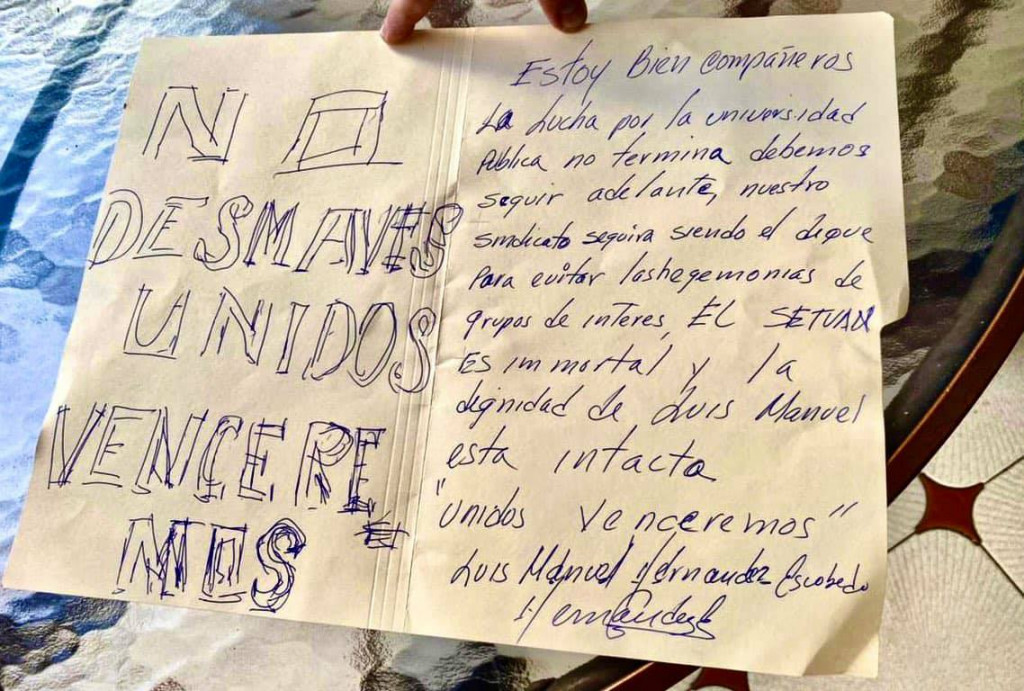 NO
DESMAYES
UNIDOS
VENCERE
MOS
Estoy Bien compañeros
La Lucha por la universidad
Publica no termina debemos
seguir adelante, nuestro
sindicato seguira siendo el dique
Para evitar las hegemonias de
grupos de interes, EL SETUAZ
Es immortal y la
dignidad de Luis Manuel
esta intacta
"Unidos Venceremos"
Luis Manuel Hernandez Escobedo